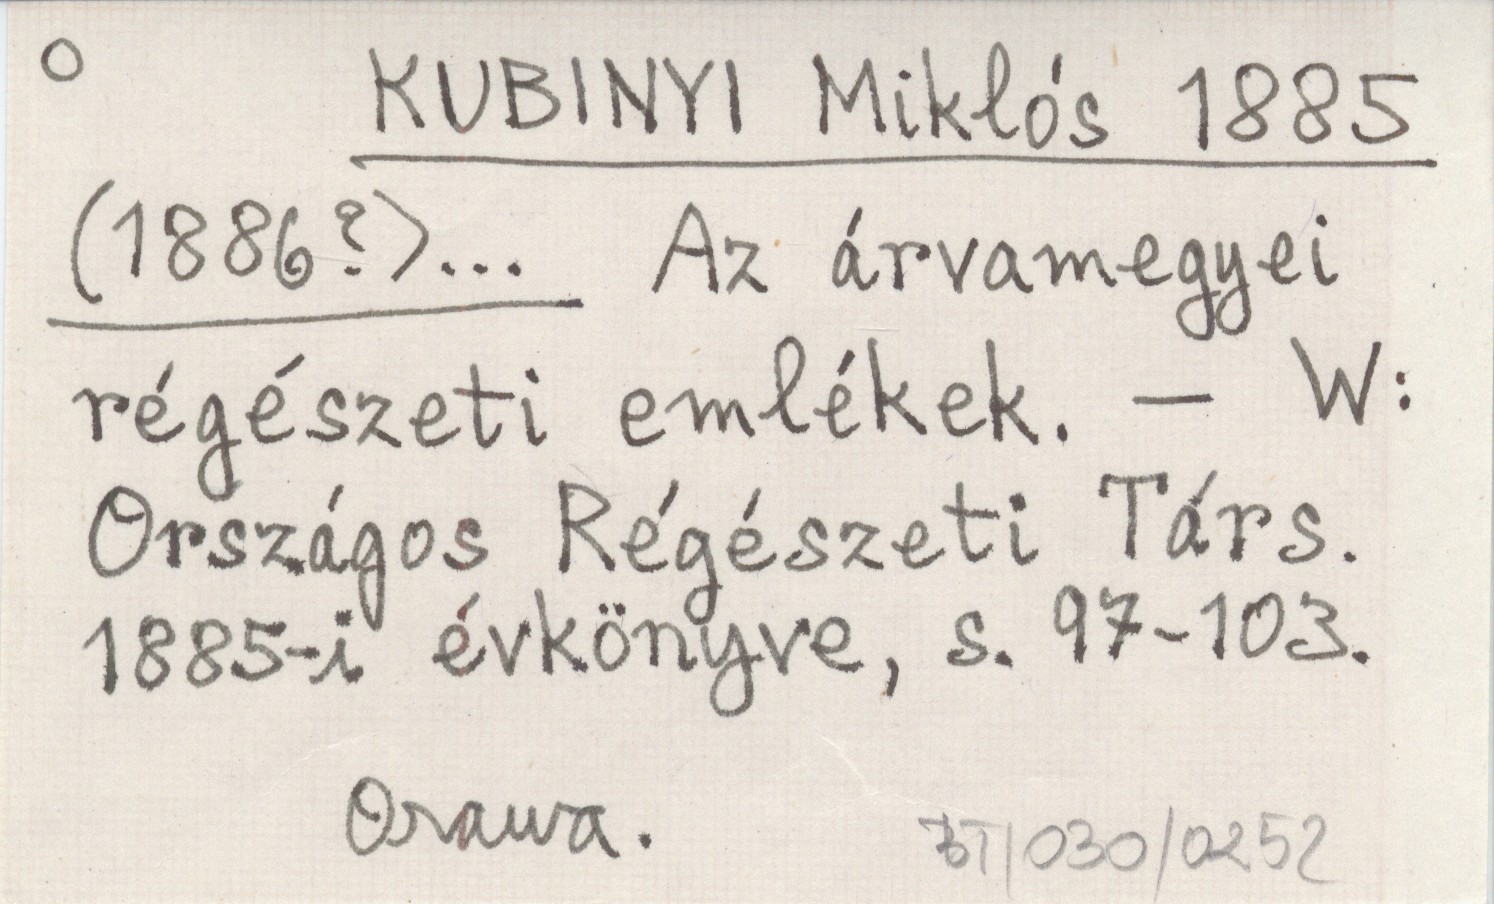 O KUBINYI Miklós 1885
(1886?)... Az árvamegyei
régészeti emlékek. – W:
Országos Régészeti Társ.
1885-i évkönyve, s. 97-103.
Orawa.
BT/030/0252